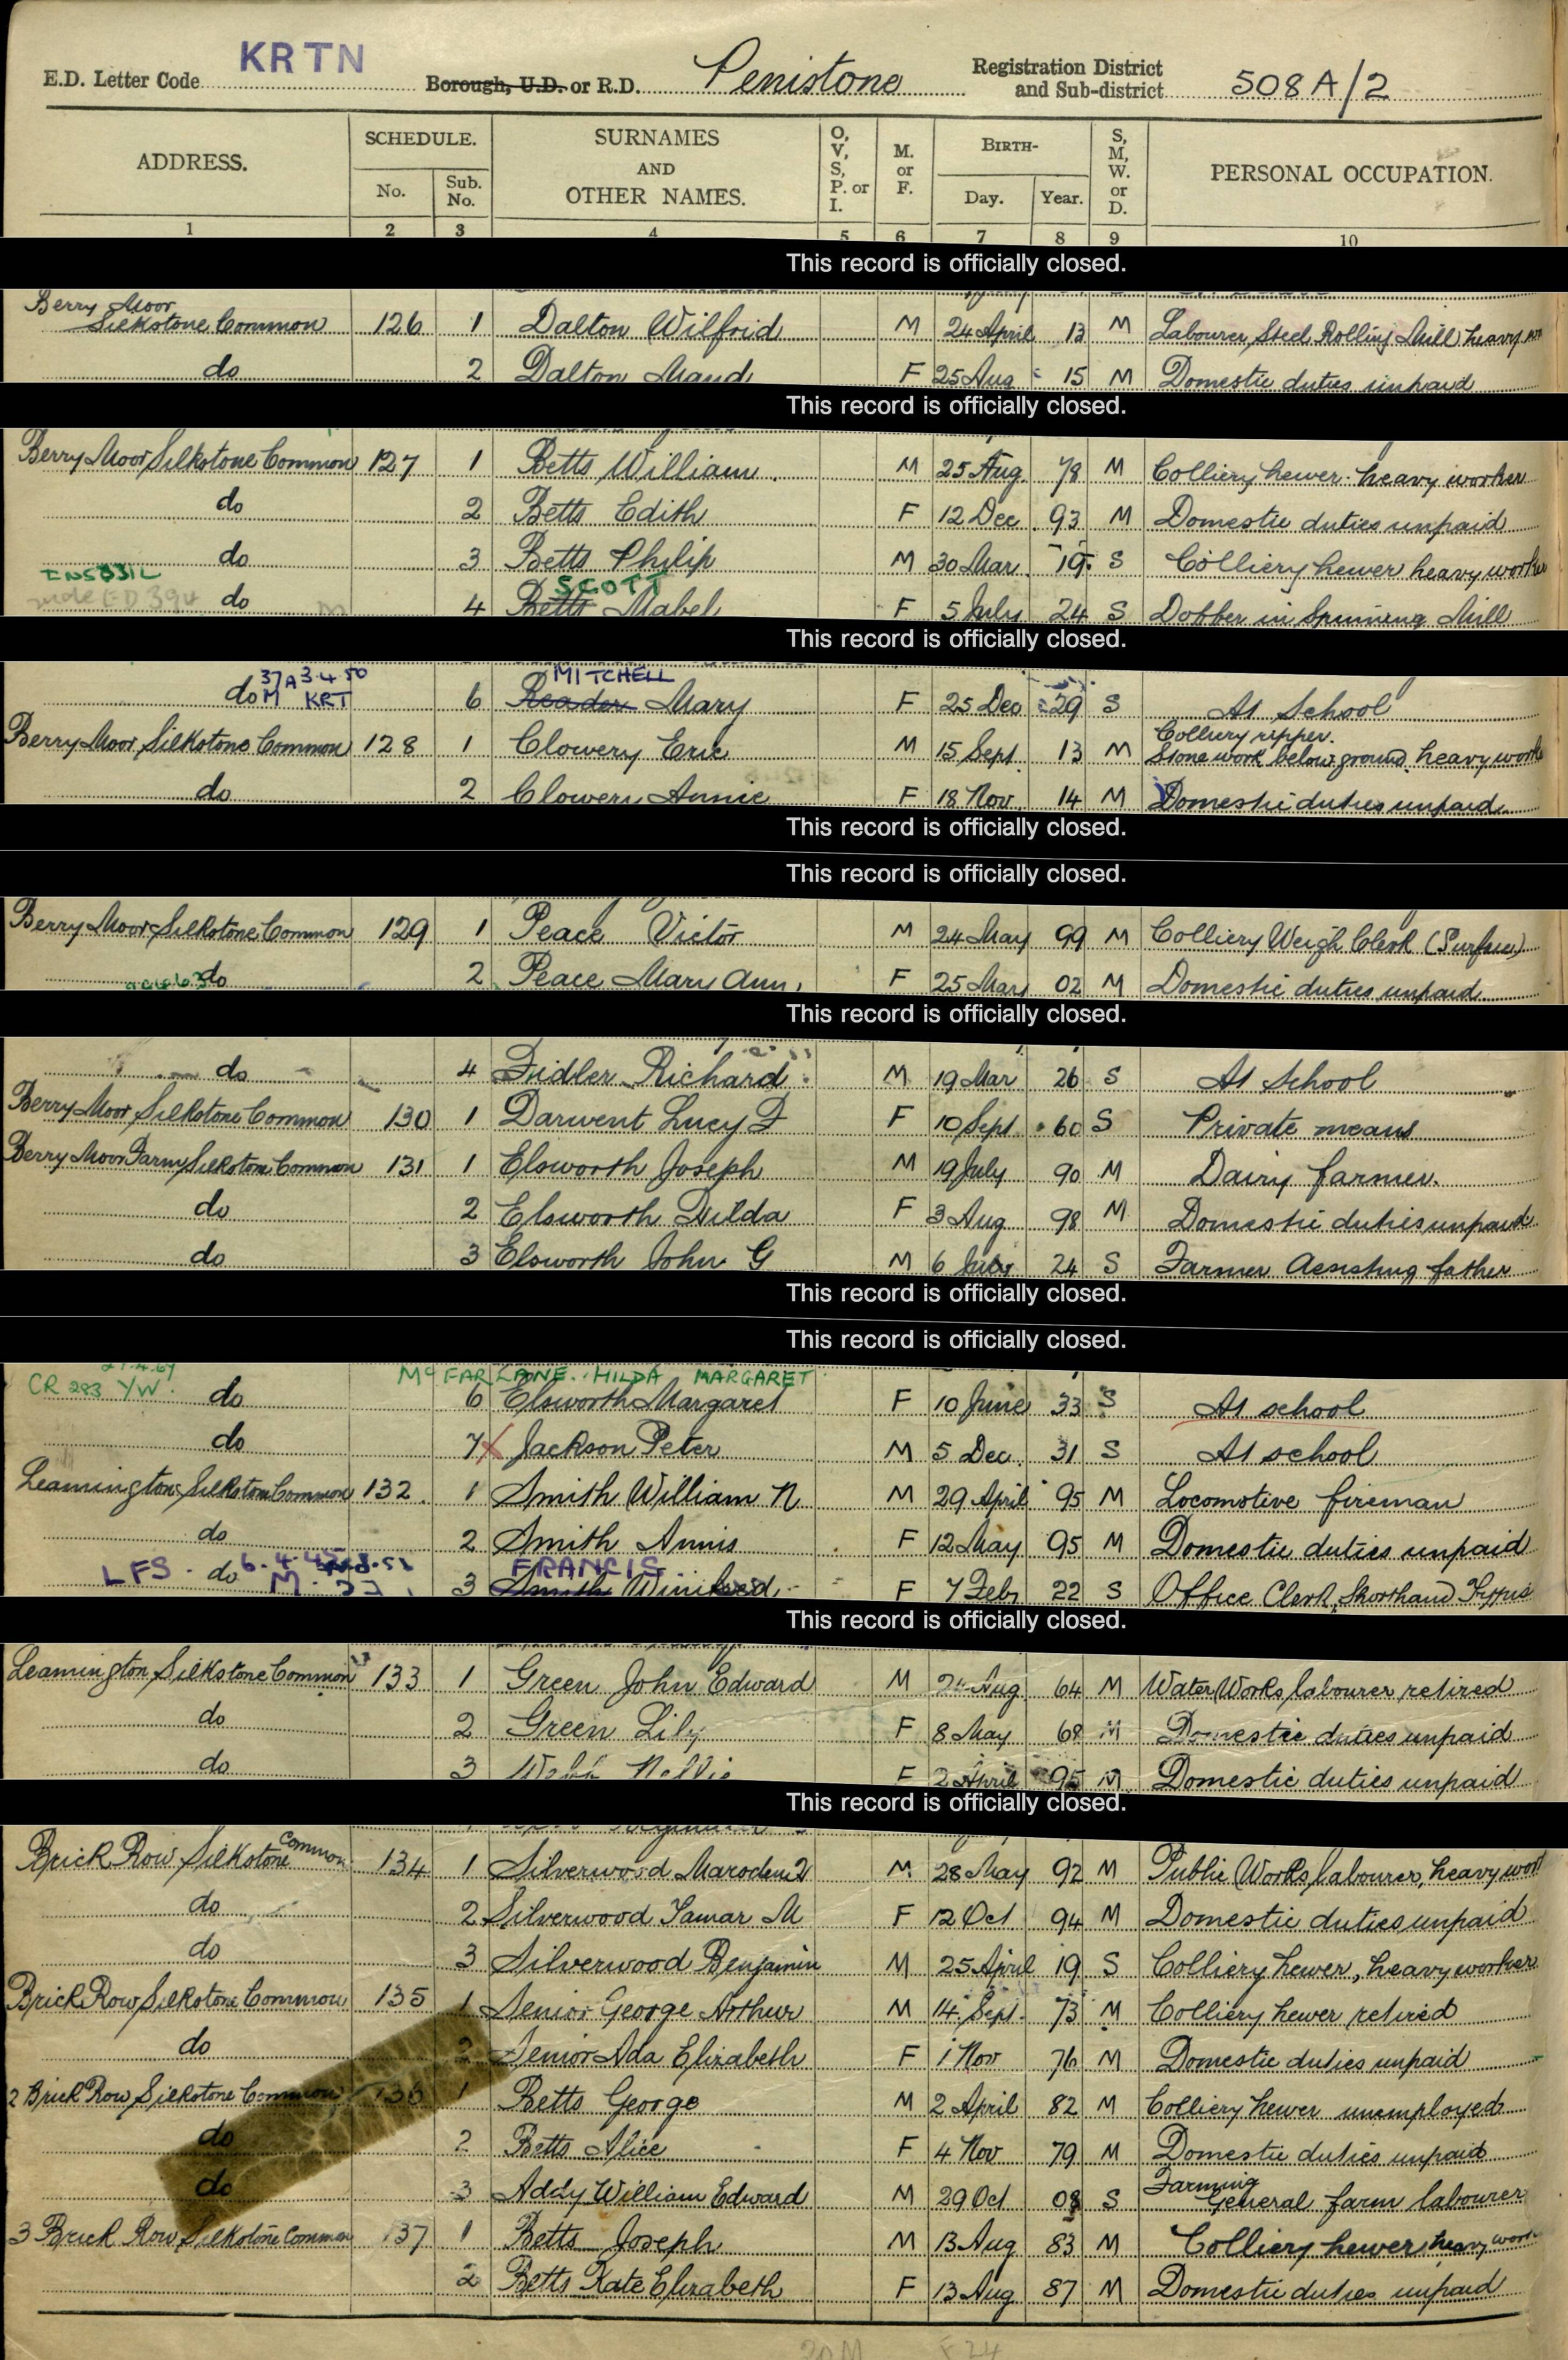 KRTN
E.D. Letter Code Borough, U.D. or R.D. Penistone Registration District and Sub-district 508A/2
ADDRESS. SCHEDULE. No. Sub. No. SURNAMES AND OTHER NAMES. O, V, S, P. or I. M. or F. BIRTH- Day. Year. S, M, W. or D. PERSONAL OCCUPATION.
1 2 3 4 5 6 7 8 9 10
This record is officially closed.
Berry Moor Silkstone Common 126 1 Dalton Wilfrid M 24 April 13 M Labourer, Steel Rolling Mill heavy
do 2 Dalton Maud F 25 Aug 15 M Domestic duties unpaid
This record is officially closed.
Berry Moor Silkstone Common 127 1 Betts William M 25 Aug 78 M Colliery hewer. heavy worker
do 2 Betts Edith F 12 Dec 93 M Domestic duties unpaid
do 3 Betts Philip M 30 Mar 19 S Colliery hewer heavy worker
SCOTT
do 4 Betts Mabel F 5 July 24 S Doffer in Spinning Mill
This record is officially closed.
37A 3.4.50 MITCHELL
do M KRT 6 Reader Mary F 25 Dec 29 S At School
Berry Moor Silkstone Common 128 1 Clowery Eric M 15 Sept 13 M Colliery ripper. Stone work below ground, heavy work
do 2 Clowery Annie F 18 Nov 14 M Domestic duties unpaid
This record is officially closed.
This record is officially closed.
Berry Moor Silkstone Common 129 1 Peace Victor M 24 May 99 M Colliery Weigh Clerk (Surface)
do 2 Peace Mary Ann F 25 Mar 02 M Domestic duties unpaid
This record is officially closed.
do 4 Fidler Richard M 19 Mar 26 S At School
Berry Moor Silkstone Common 130 1 Darwent Lucy F F 10 Sept 60 S Private means
Berry Moor Farm Silkstone Common 131 1 Elsworth Joseph M 19 July 90 M Dairy farmer.
do 2 Elsworth Hilda F 3 Aug 98 M Domestic duties unpaid
do 3 Elsworth John G M 6 July 24 S Farmer Assisting father
This record is officially closed.
This record is officially closed.
CR 283 YW. McFARLANE. HILDA MARGARET
do 6 Elsworth Margaret F 10 June 33 S At school
do 7 Jackson Peter M 5 Dec 31 S At school
Leamington Silkstone Common 132 1 Smith William N M 29 April 95 M Locomotive fireman
do 2 Smith Annis F 12 May 95 M Domestic duties unpaid
LFS. 6.4.45 FRANCIS
do M 3 Smith Winifred F 7 Feb 22 S Office Clerk, Shorthand Typist
This record is officially closed.
Leamington Silkstone Common 133 1 Green John Edward M Aug 64 M Water Works labourer retired
do 2 Green Lily F 8 May 68 M Domestic duties unpaid
do 3 Webb Nellie F 2 April 95 M Domestic duties unpaid
This record is officially closed.
Brick Row Silkstone Common 134 1 Silverwood M 28 May 92 M Public Works labourer, heavy work
do 2 Silverwood Tamar M F 12 Oct 94 M Domestic duties unpaid
do 3 Silverwood Benjamin M 25 April 19 S Colliery hewer, heavy worker
Brick Row Silkstone Common 135 1 Senior George Arthur M 14 Sept 73 M Colliery hewer retired
do 2 Senior Ada Elizabeth F 1 Nov 76 M Domestic duties unpaid
2 Brick Row Silkstone Common 136 1 Betts George M 2 April 82 M Colliery hewer unemployed
do 2 Betts Alice F 4 Nov 79 M Domestic duties unpaid
do 3 Addy William Edward M 29 Oct 08 S Farming General farm labourer
3 Brick Row Silkstone Common 137 1 Betts Joseph M 13 Aug 83 M Colliery hewer heavy work
2 Betts Kate Elizabeth F 13 Aug 87 M Domestic duties unpaid
20M F24